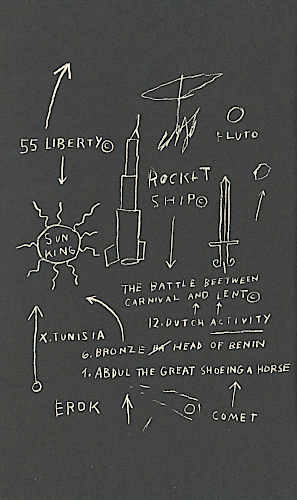 55 LIBERTY©
PLUTO
ROCKET
SHIP©
SUN
KING
THE BATTLE BEETWEEN
CARNIVAL AND LENT©
12. DUTCH ACTIVITY
X. TUNISIA
6. BRONZE HEAD OF BENIN
1. ABDUL THE GREAT SHOEING A HORSE
EROK
COMET